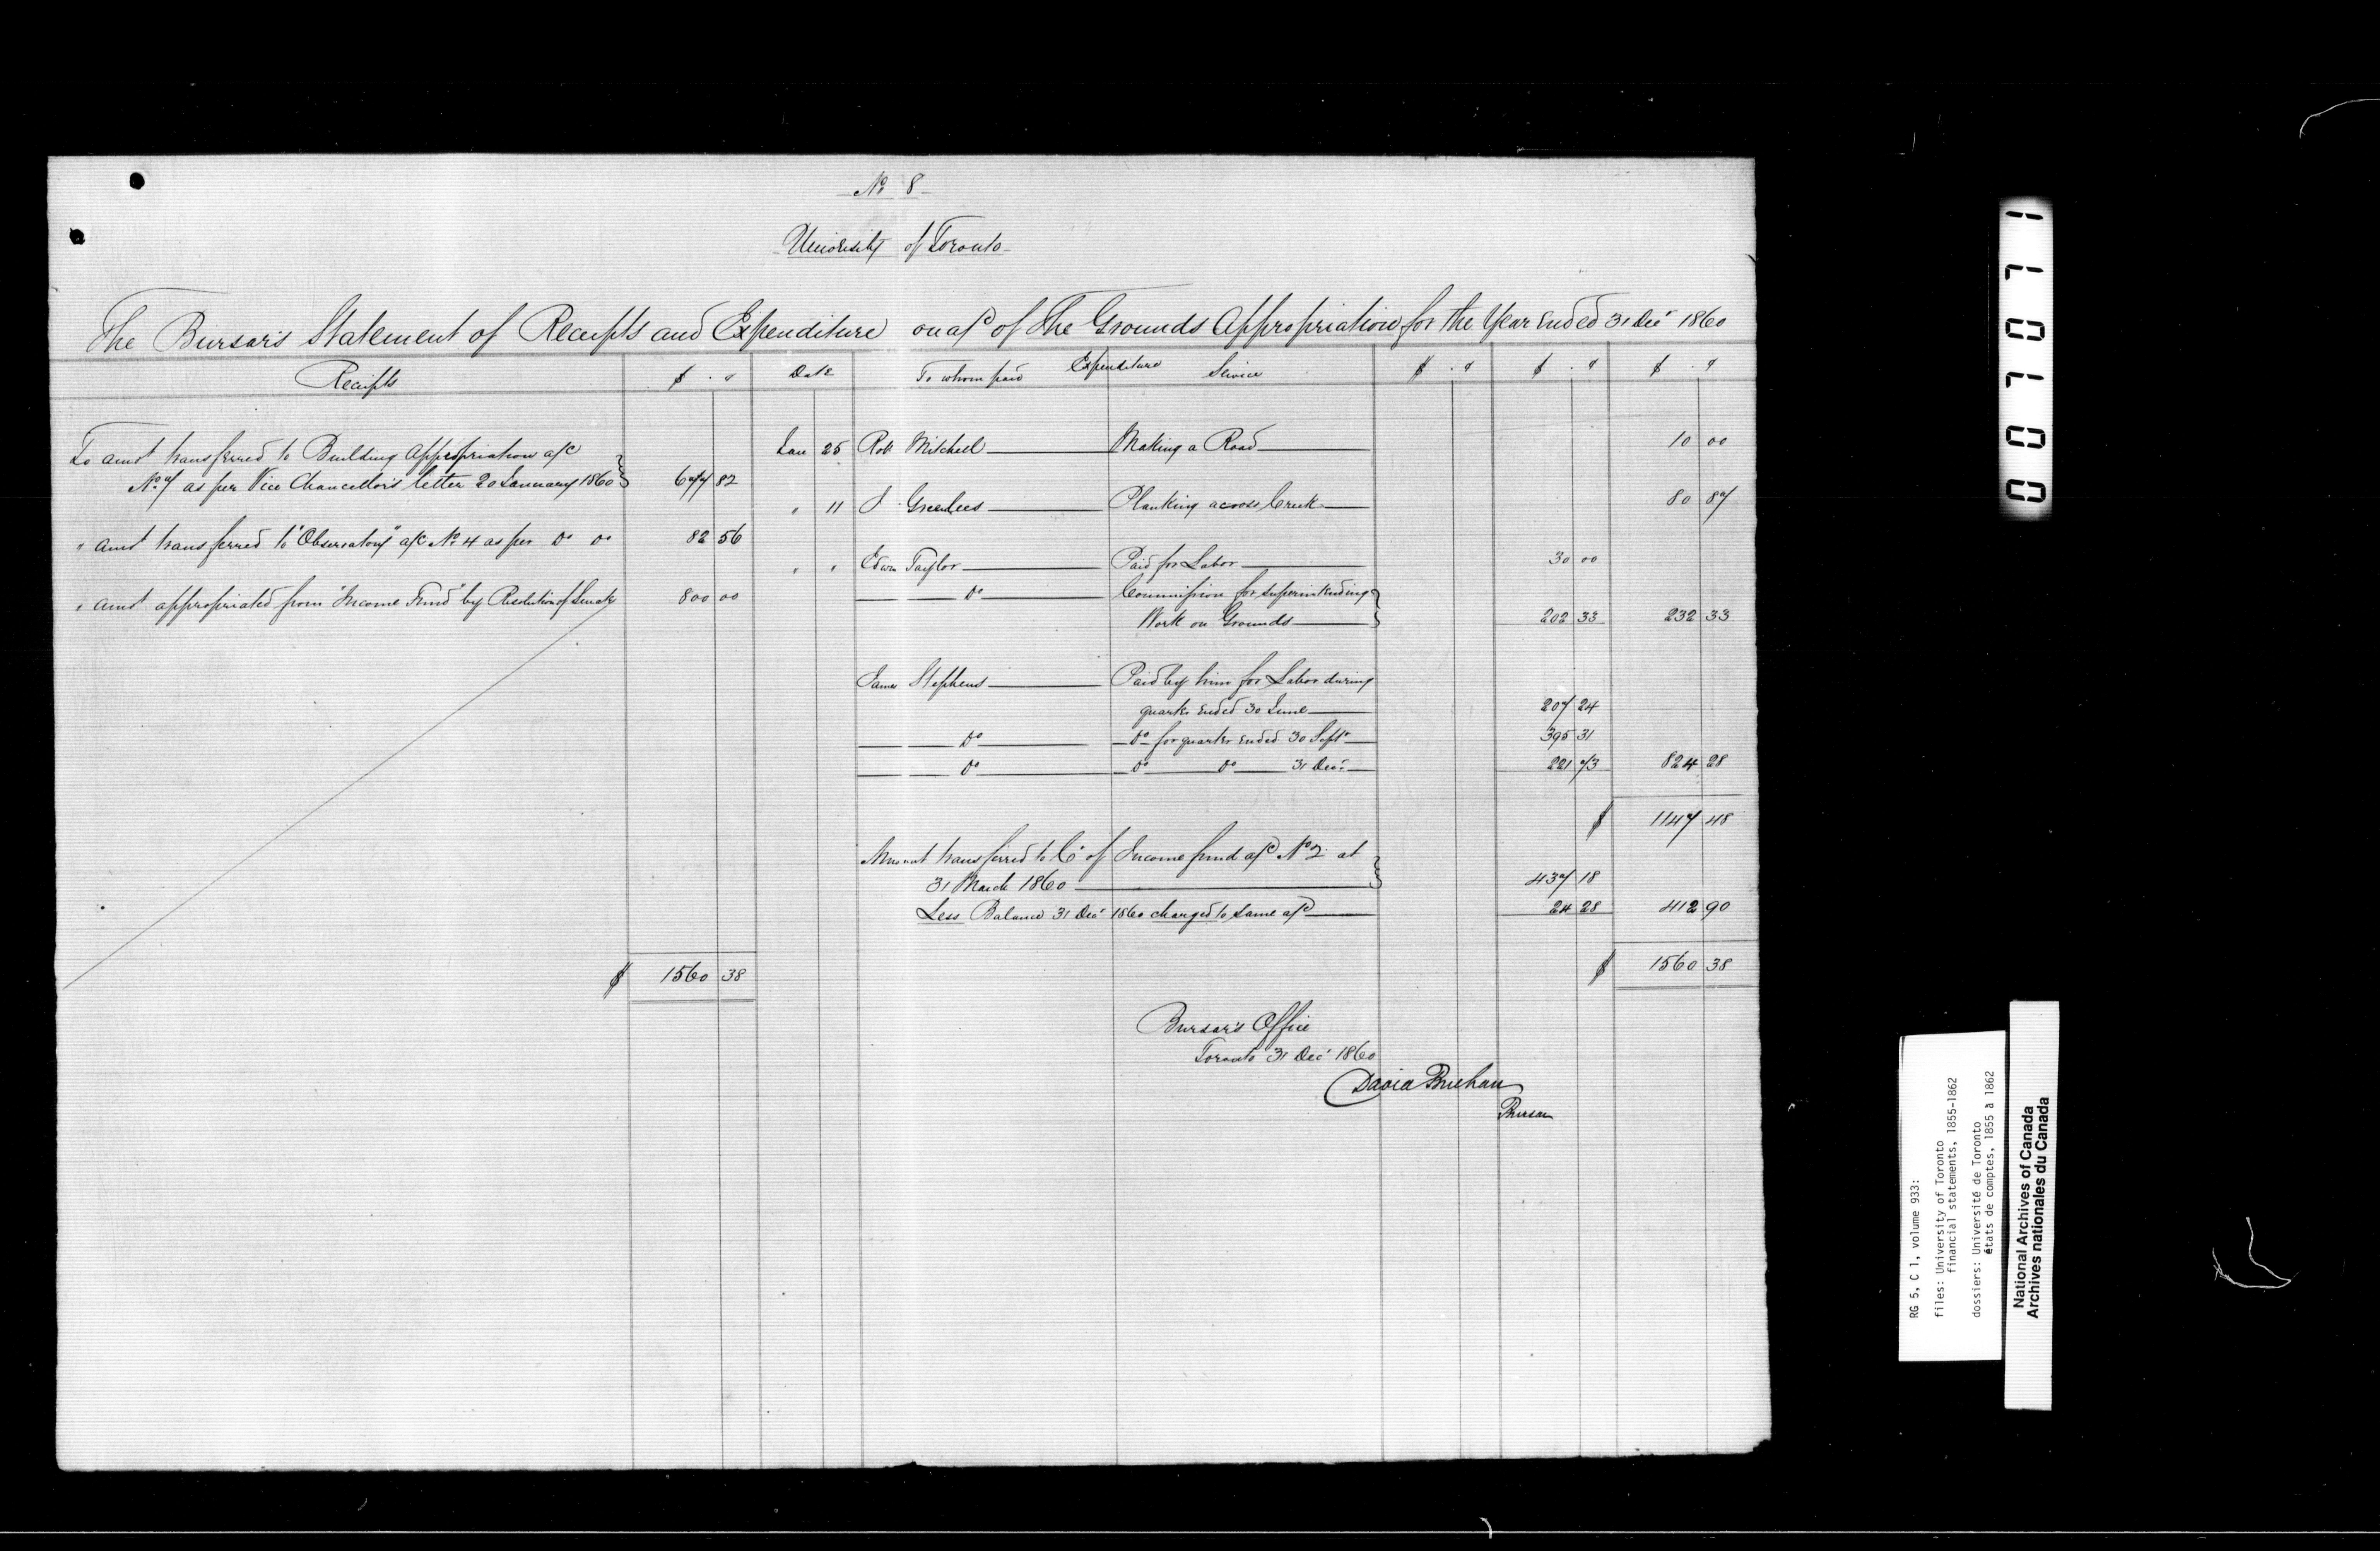 No 8
University of Toronto
The Bursar's Statement of Receipts and Expenditure on a/c of The Grounds Appropriation for the Year Ended 31 Decr 1860
Receipts $ . c Date To whom paid Expenditure Service $ . c $ . c $ . c
To amot transferred to Building Appropriation a/c
No 7 as per Vice Chancellor's letter 20 January 1860 677 82
" amot transferred to "Observatory" a/c No 4 as per Do Do 82 56
" amot appropriated from "Income Fund" by Resolution of Senate 800 00
$ 1560 38
Jan 25 Robt Mitchell Making a Road 10 00
" 11 Greenlees Planking across Creek 80 87
" " Edwn Taylor Paid for Labor 30 00
Do Commission for superintending
Work on Grounds 202 33 232 33
James Stephens Paid by him for Labor during
quarter ended 30 June 207 24
Do Do for quarter ended 30 Sept 395 31
Do Do Do 31 Decr 221 73 824 28
$ 1147 48
Amount transferred to Cr of Income fund a/c No 2 at
31 March 1860 437 18
Less Balance 31 Decr 1860 charged to same a/c 24 28 412 90
$ 1560 38
Bursar's Office
Toronto 31 Decr 1860
David Buchan
Bursar
007071
RG 5, C 1, volume 933:
files: University of Toronto
financial statements, 1855-1862
dossiers: Université de Toronto
états de comptes, 1855 à 1862
National Archives of Canada
Archives nationales du Canada